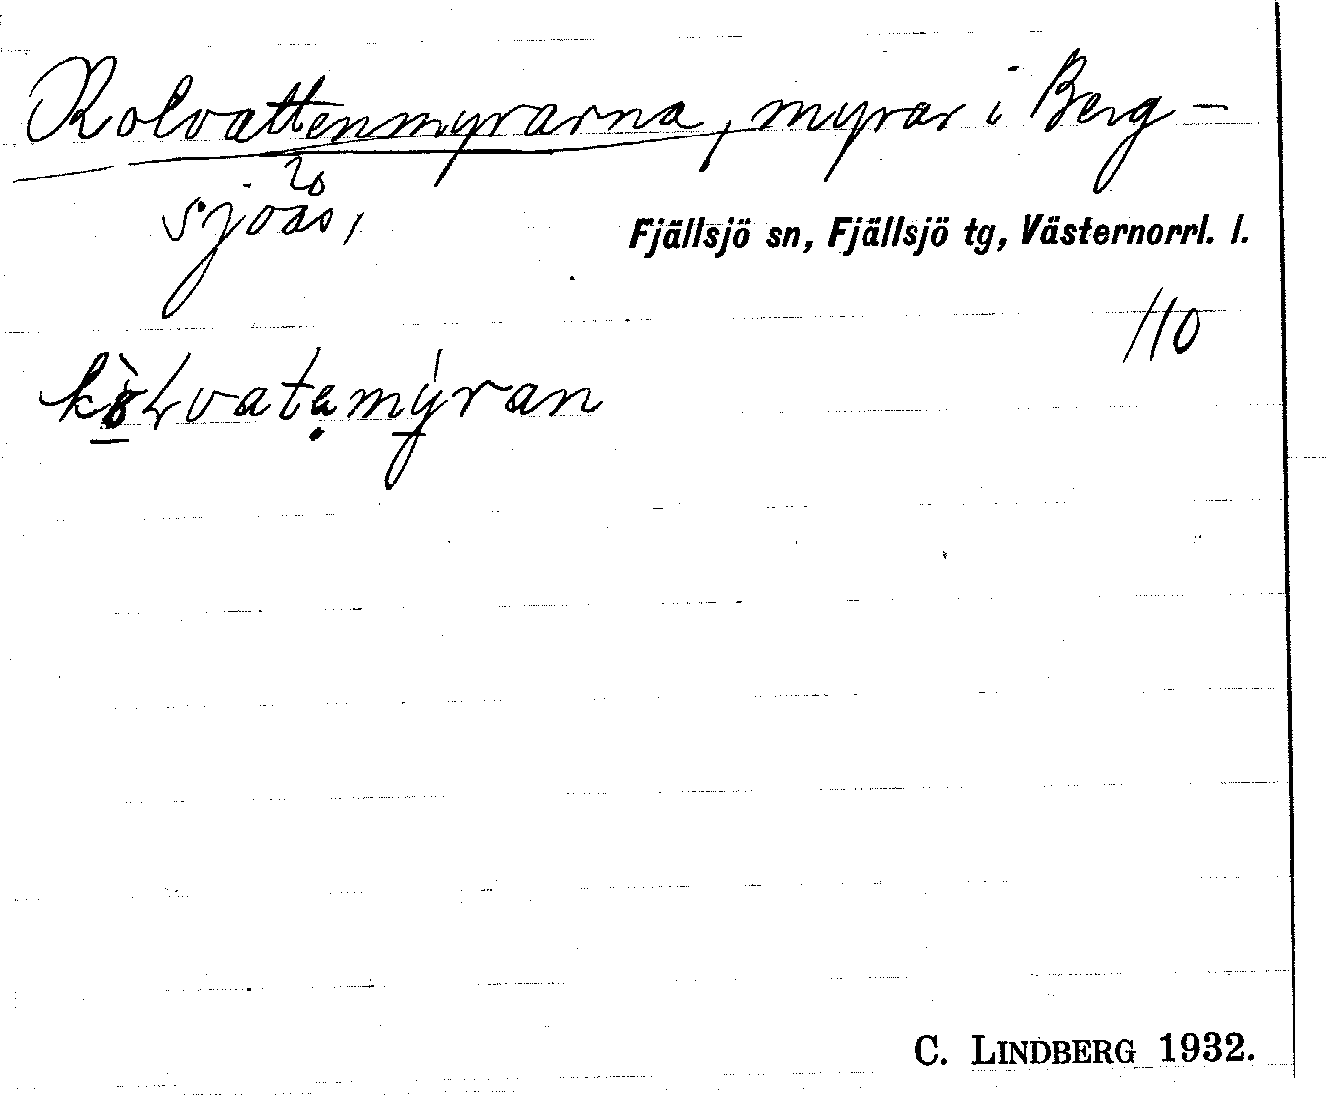 Kolvattenmyrarna, myrar i Berg-
sjöås,
Fjällsjö sn, Fjällsjö tg, Västernorrl. l.
110
C. LINDBERG 1932.